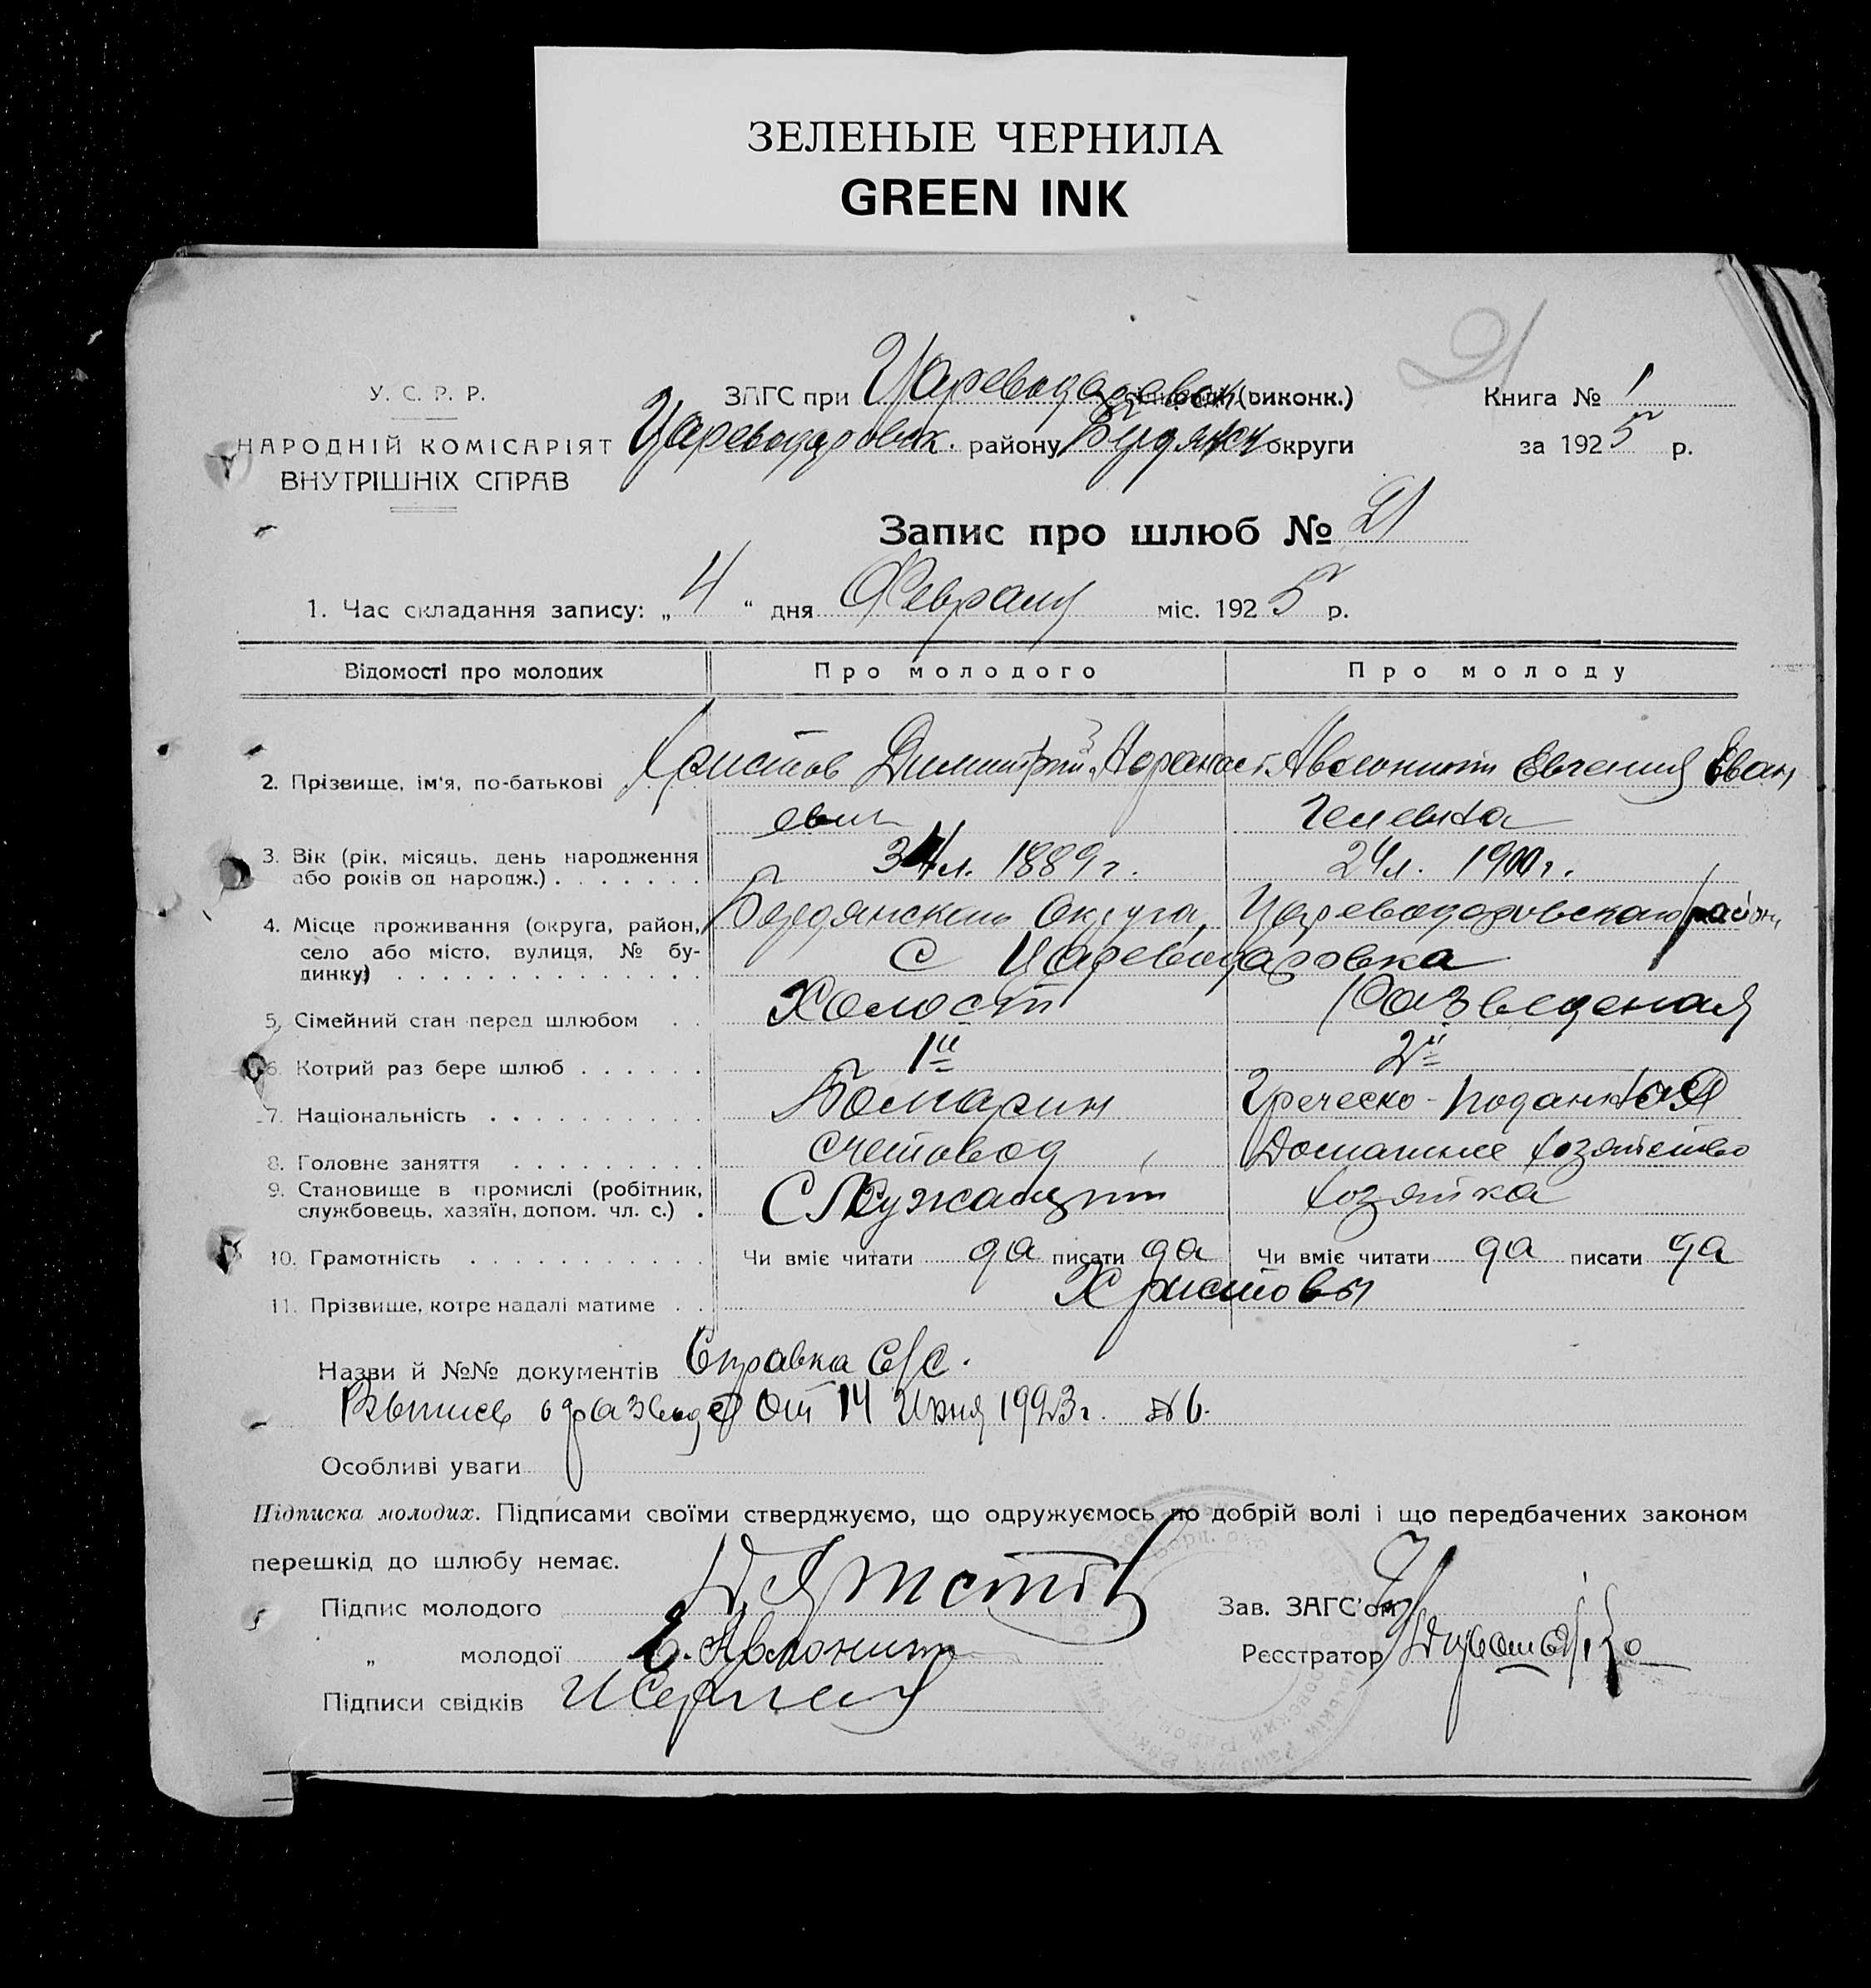 ЗЕЛЕНЫЕ ЧЕРНИЛА
GREEN INK
21
У. С. Р. Р.
НАРОДНІЙ КОМІСАРІЯТ
ВНУТРІШНІХ СПРАВ
ЗАГС при Цареводаровск. (виконк.)
Цареводаровск. району Бердянск округи
Книга № 1
за 1925 р.
Запис про шлюб № 21
1. Час складання запису: „ 4 “ дня Февраля міс. 1925 р.
Відомості про молодих Про молодого Про молоду
2. Прізвище, ім'я, по-батькові Христов Димитрий Афанас Аволонити Евгения Еван
евич геловна
3. Вік (рік, місяць, день народження або років од народж.) 34 л. 1889 г. 24 л. 1900 г.
4. Місце проживання (округа, район, село або місто, вулиця, № будинку) Бердянского Округа, Цареводаровского район,
С Цареводаровка
5. Сімейний стан перед шлюбом Холост Разведеная
6. Котрий раз бере шлюб 1й 2й
7. Національність Болгарин Греческо-подданная
8. Головне заняття счетовод Домашнее хозяйство
9. Становище в промислі (робітник, службовець, хазяїн, допом. чл. с.) Служащий хозяйка
10. Грамотність Чи вміє читати да писати да Чи вміє читати да писати да
11. Прізвище, котре надалі матиме Христовы
Назви й №№ документів Справка С/С.
Выпись о разводе от 14 Июня 1923 г. № 6.
Особливі уваги
Підписка молодих. Підписами своїми стверджуємо, що одружуємось по добрій волі і що передбачених законом
перешкід до шлюбу немає.
Підпис молодого Д. Христов
„ молодої Е. Аволонити
Підписи свідків
Зав. ЗАГС'ом
Реєстратор